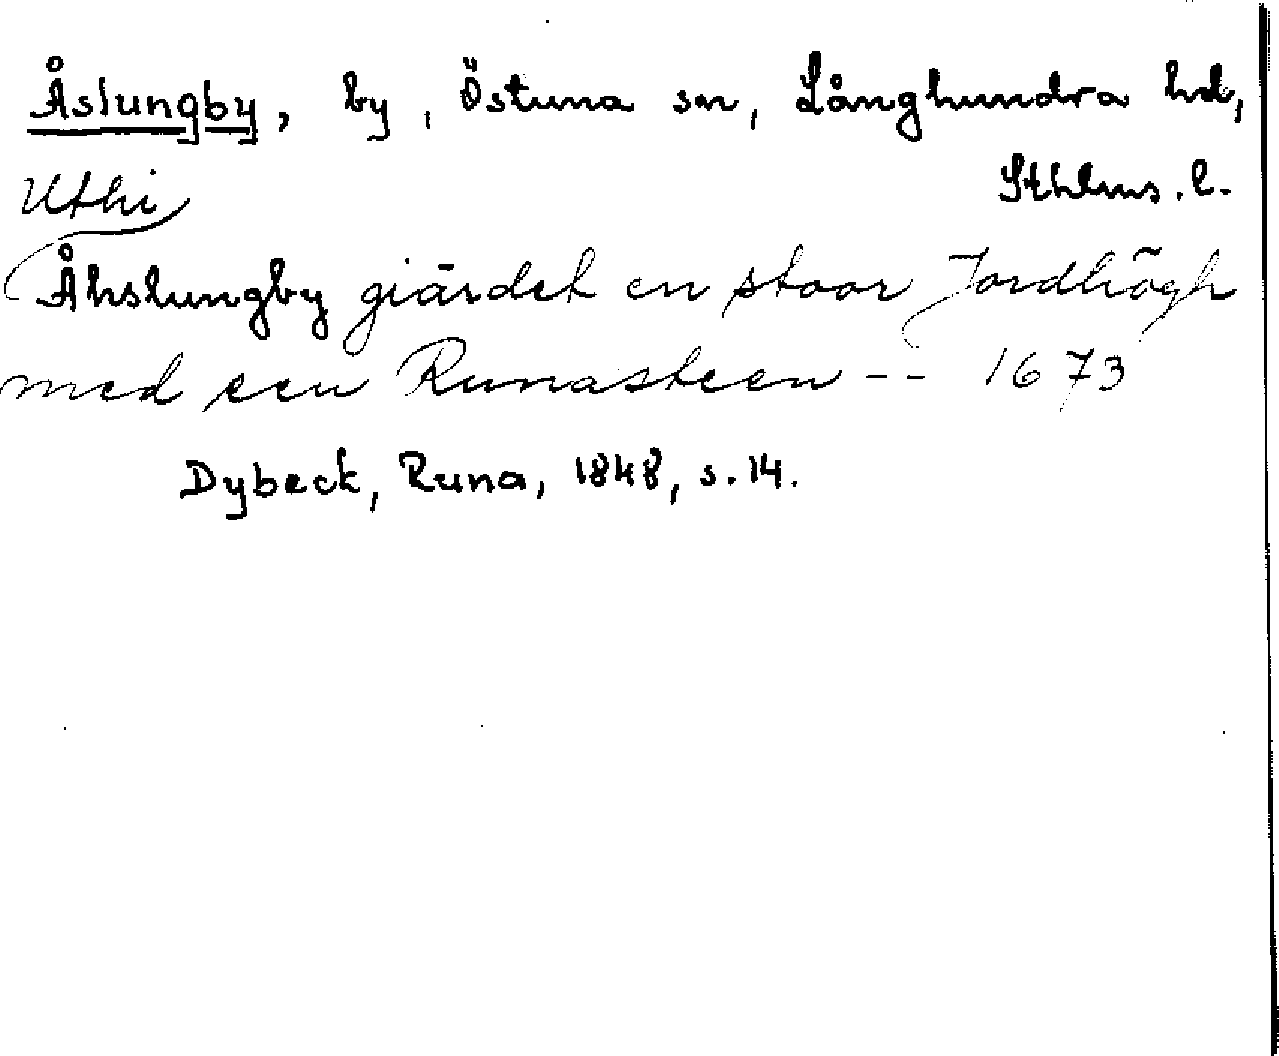 Åslungby, by, Östuna sn, Långhundra hd,
Sthlms. l.
Uthi
Åhslungby giärdet en stoor Jordhögh
med een Runasteen -- 1673
Dybeck, Runa, 1848, s. 14.